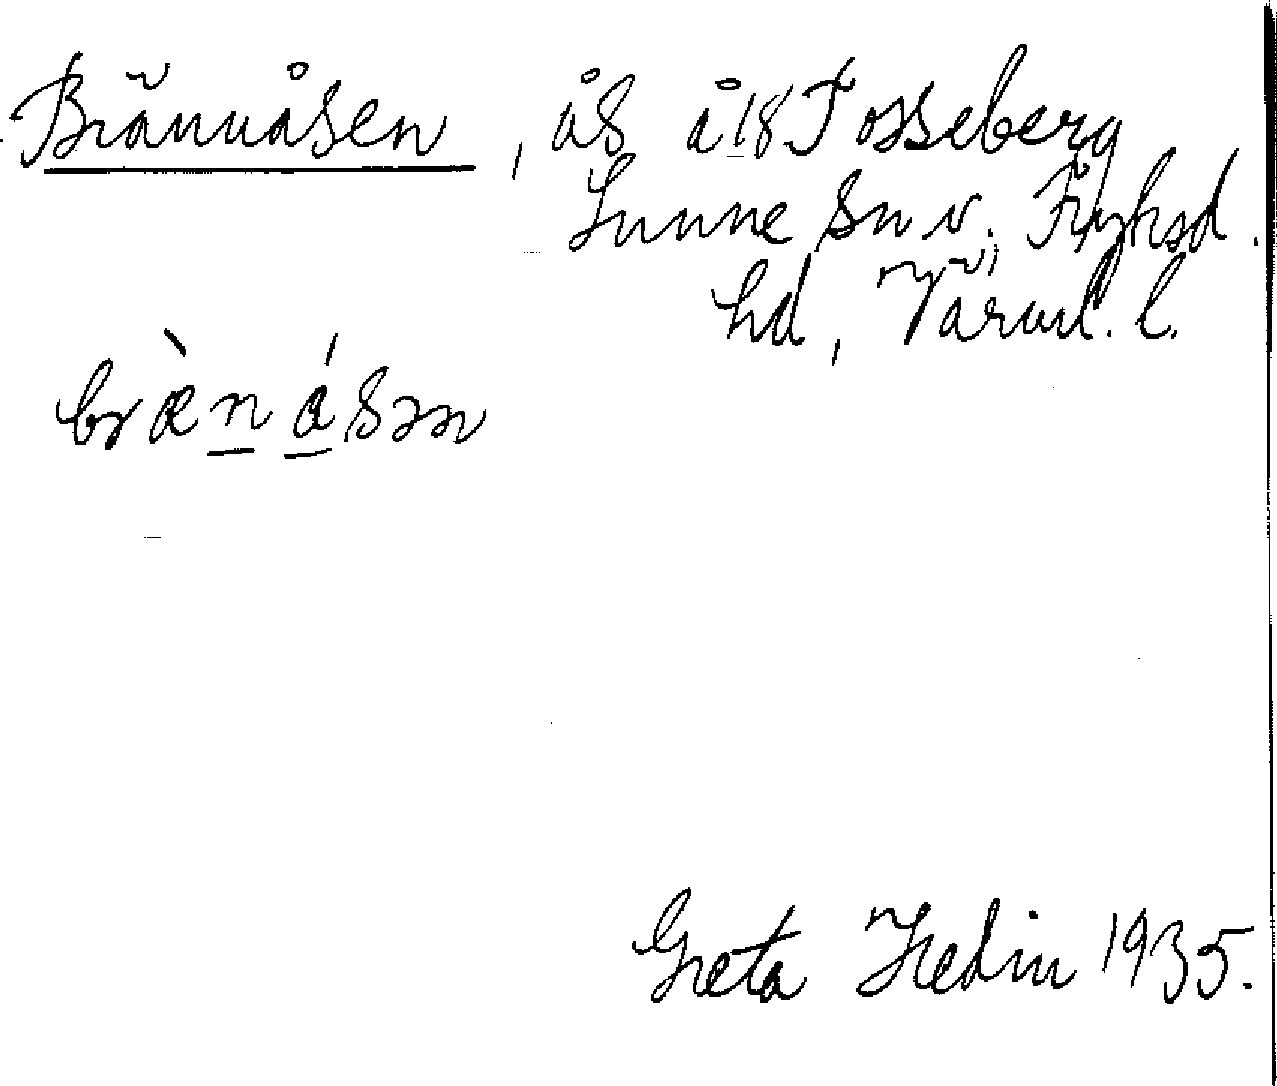 Brännåsen, ås å 18 Tosseberg
Sunne sn v. Fryksd.
hd, Värml. l.
bræ̀násən
Greta Hedin 1935.